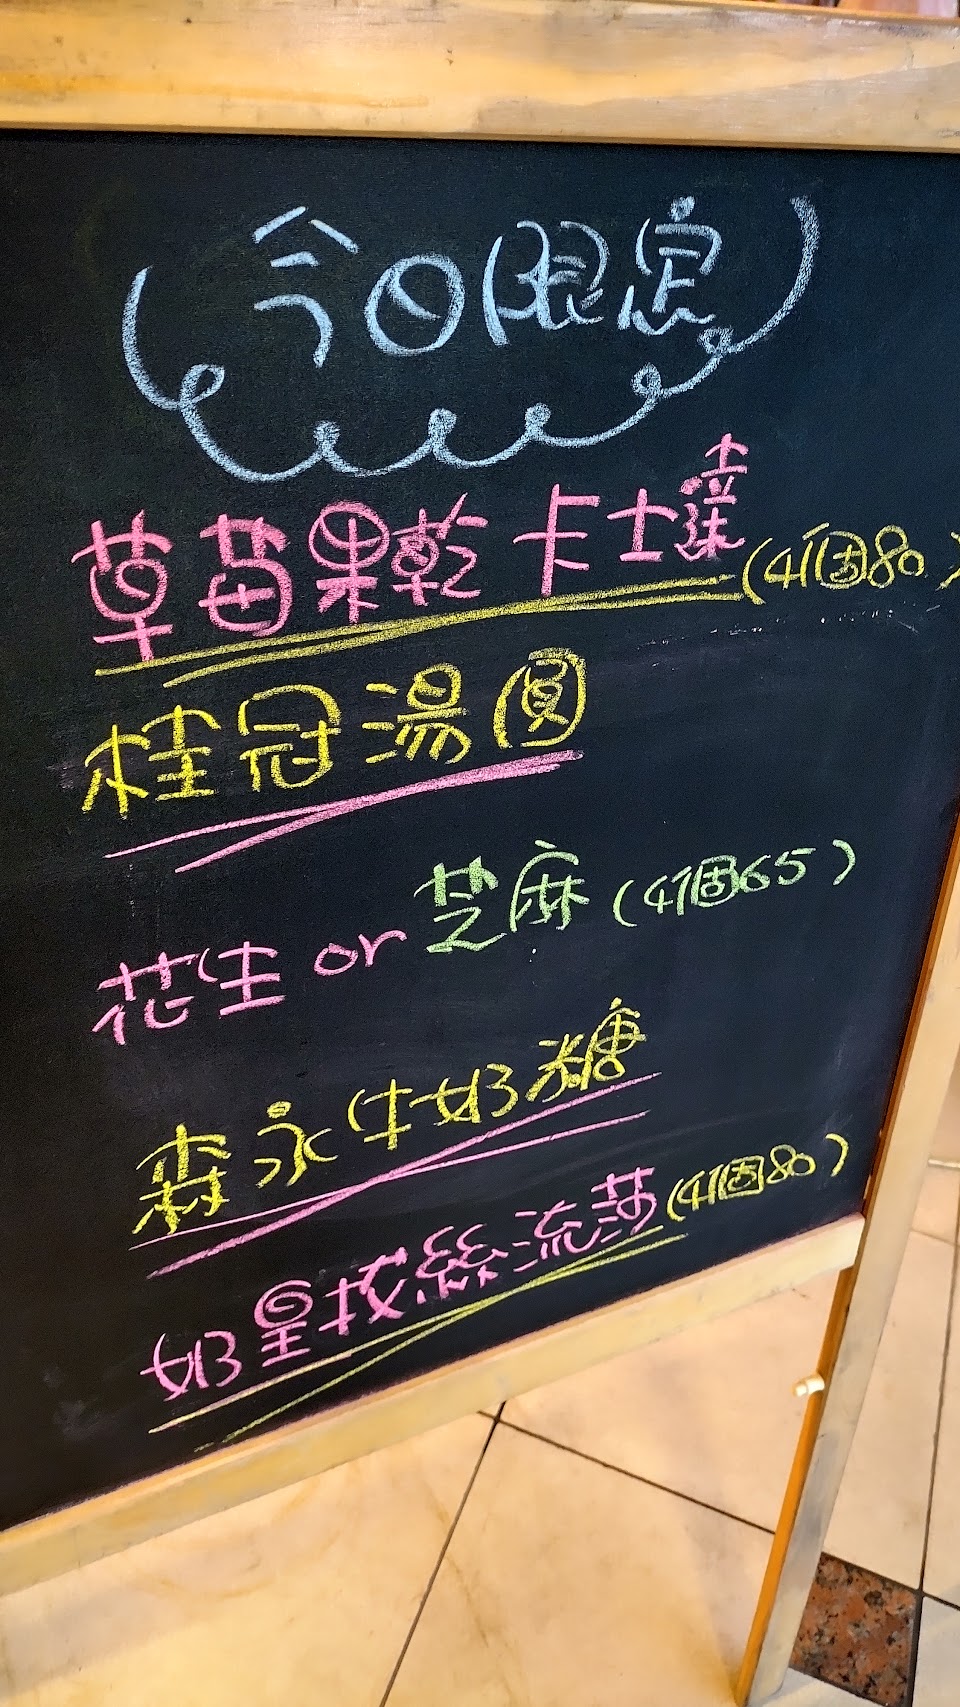 今日限定
草莓果乾卡士達(4個80)
桂冠湯圓
花生or芝麻(4個65)
森永牛奶糖
奶皇拔絲流莎(4個80)